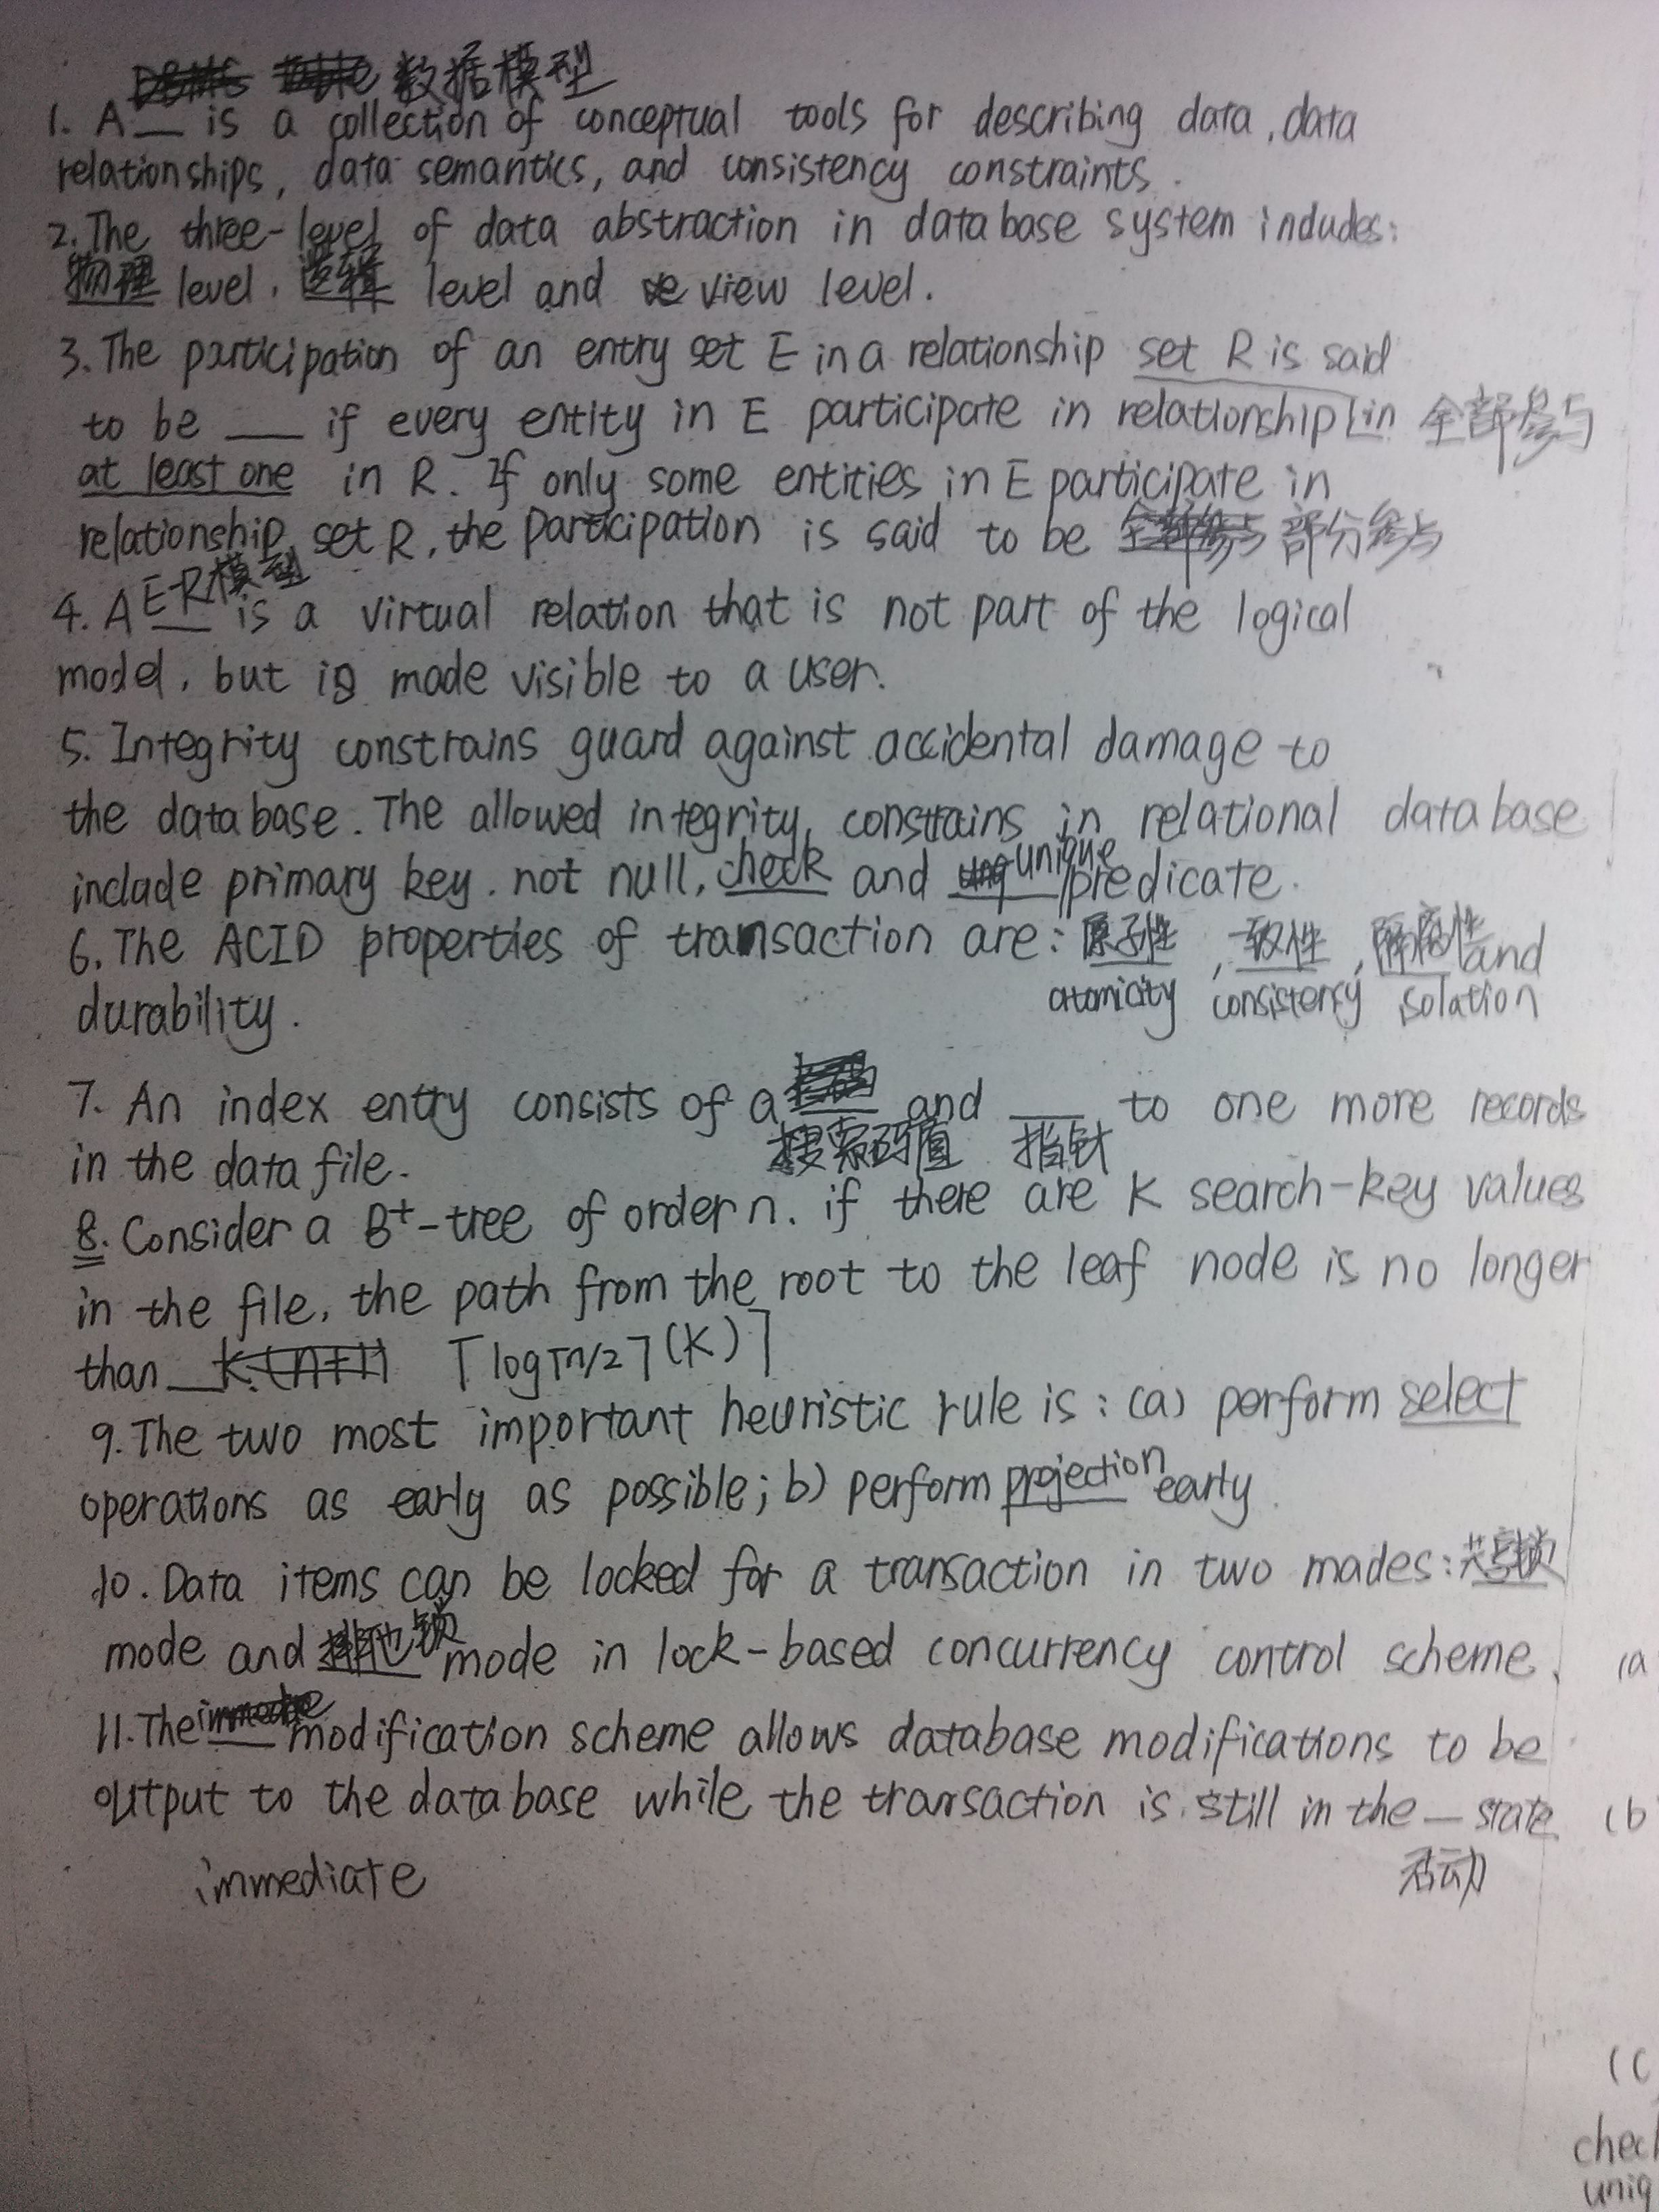 数据模型
1. A __ is a collection of conceptual tools for describing data, data
relationships, data semantics, and consistency constraints.
2. The three-level of data abstraction in database system includes:
物理 level, 逻辑 level and ve view level.
3. The participation of an entry set E in a relationship set R is said
to be __ if every entity in E participate in relationship in 全部参与
at least one in R. If only some entities in E participate in
relationship set R, the participation is said to be 全部参与 部分参与
E-R模型
4. A __ is a virtual relation that is not part of the logical
model, but is made visible to a user.
5. Integrity constrains guard against accidental damage to
the database. The allowed integrity constrains in relational database
include primary key, not null, check and unq unique predicate.
6. The ACID properties of transaction are: 原子性, 一致性, 隔离性 and
atomicity consistency solation
durability.
7. An index entry consists of a __ and __ to one more records
搜索码值 指针
in the data file.
8. Consider a B+-tree of order n. if there are K search-key values
in the file, the path from the root to the leaf node is no longer
than __ K.(n+1) ⌈log⌈n/2⌉(K)⌉
9. The two most important heuristic rule is: (a) perform select
operations as early as possible; b) perform projection early.
10. Data items can be locked for a transaction in two mades: 共享锁
mode and 排他锁 mode in lock-based concurrency control scheme. (a
11. The __ modification scheme allows database modifications to be
output to the database while the transaction is still in the __ state (b
immediate 活动
(c
check
uniq